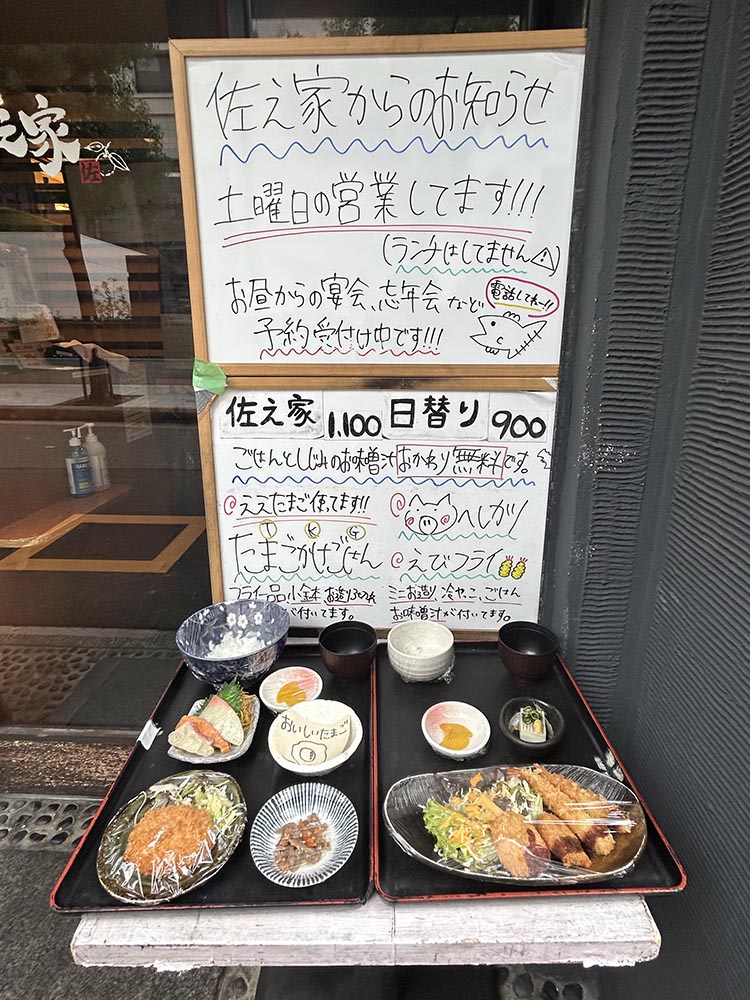 え家
佐
佐え家からのお知らせ
土曜日の営業してます!!!
(ランチはしてません⚠)
お昼からの宴会、忘年会など
電話してねー!!
予約受付け中です!!!
佐え家 1,100 日替り 900
ごはんとしじみのお味噌汁おかわり無料です。
@ええたまご使てます!!
TKG
たまごかけごはん
フライ一品、小鉢一本 お造り
が付いてます。
@ へレカツ
@えびフライ
ミニお造り、冷やっこ、ごはん
お味噌汁が付いてます。
おいしいたまご